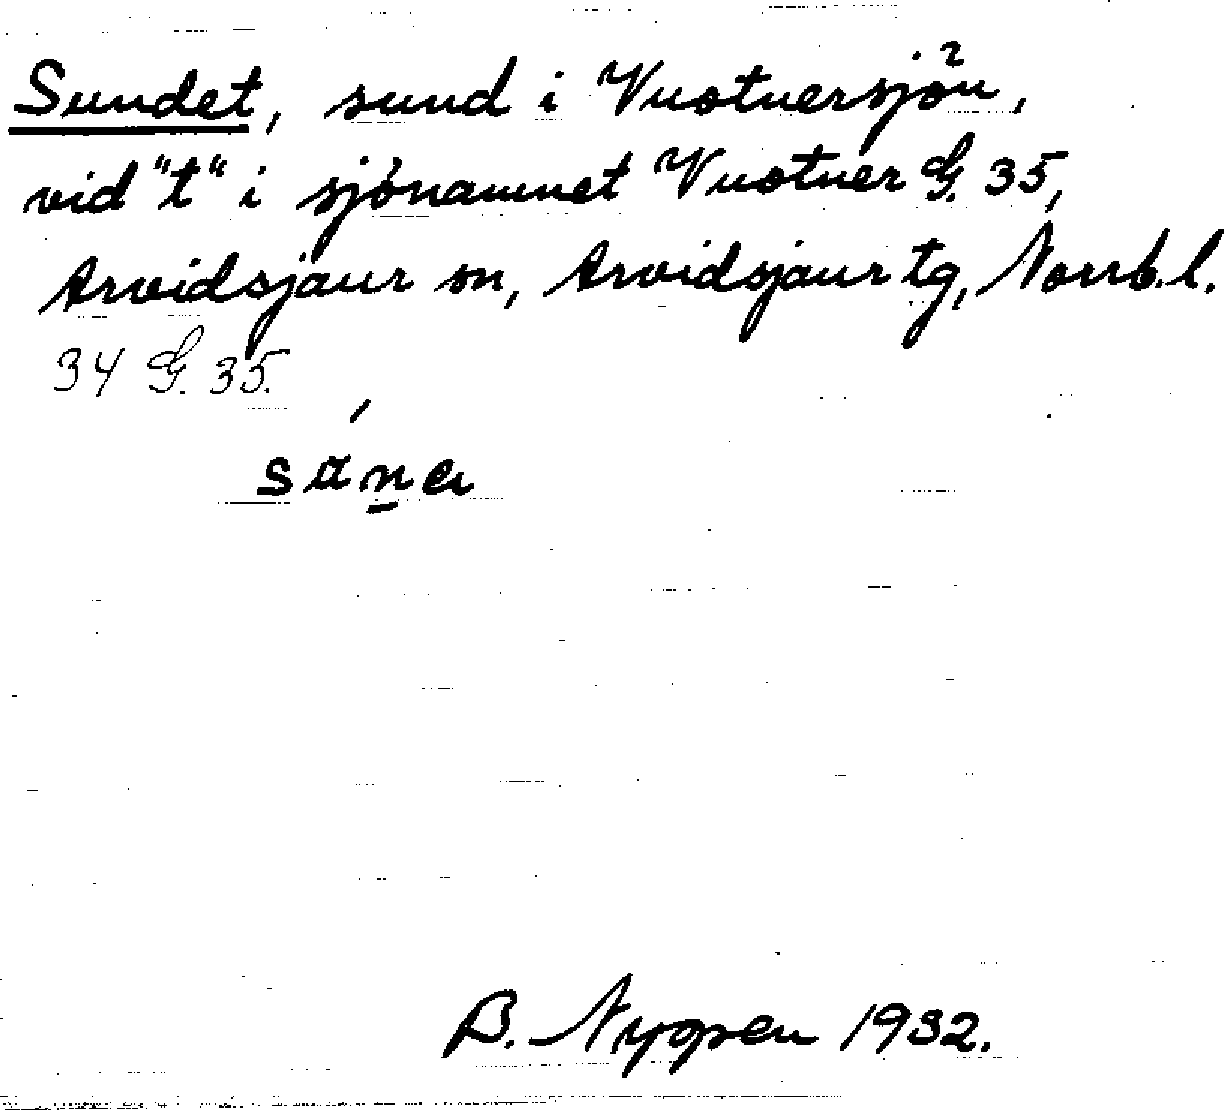 Sundet, sund i Vuotnersjön²,
vid "t" i sjönamnet Vuotner G. 35,
Arvidsjaur sn, Arvidsjaur tg, Norrb. l.
34 G. 35.
B. Nygren 1932.